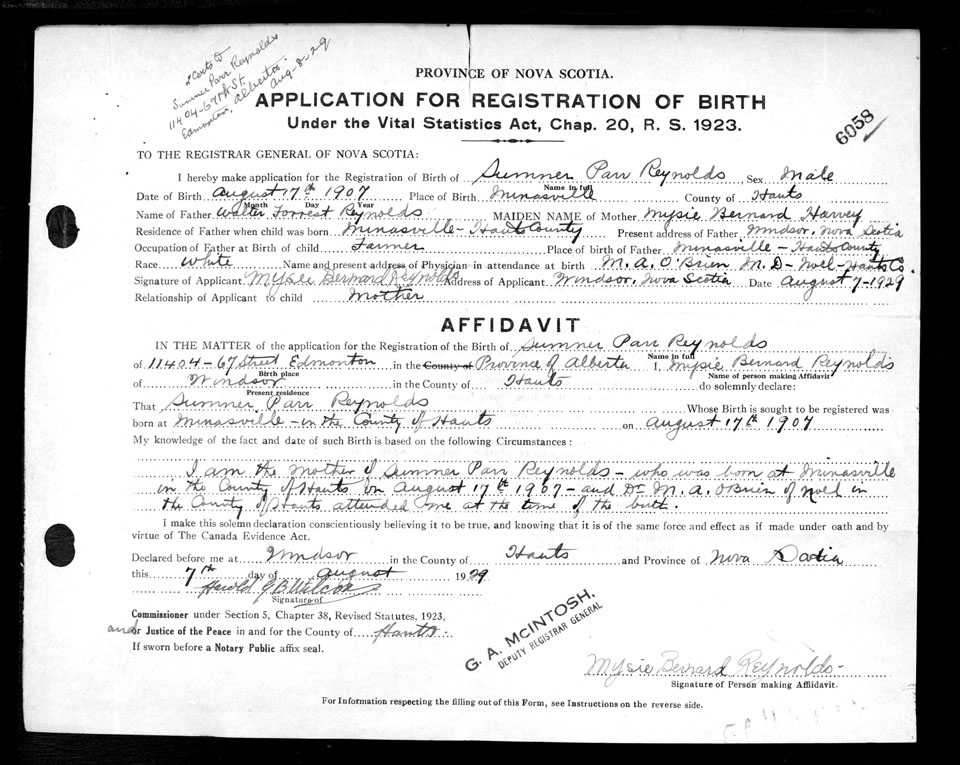 2 Certs to
Sumner Parr Reynolds
11404-67th St.
Edmonton, Alberta.
Aug-8-29
PROVINCE OF NOVA SCOTIA.
APPLICATION FOR REGISTRATION OF BIRTH
Under the Vital Statistics Act, Chap. 20, R. S. 1923.
6058
TO THE REGISTRAR GENERAL OF NOVA SCOTIA:
I hereby make application for the Registration of Birth of Sumner Parr Reynolds Sex Male
Name in full
Date of Birth August 17th 1907 Place of Birth Minasville County of Hants
Month Day Year
Name of Father Walter Forrest Reynolds MAIDEN NAME of Mother Mysie Bernard Harvey
Residence of Father when child was born Minasville - Hants County Present address of Father Windsor, Nova Scotia
Occupation of Father at Birth of child Farmer Place of birth of Father Minasville - Hants County
Race White Name and present address of Physician in attendance at birth M. A. O'Brien M. D - Noel - Hants Co.
Signature of Applicant Mysie Bernard Reynolds Address of Applicant Windsor, Nova Scotia Date August 7-1929
Relationship of Applicant to child Mother
AFFIDAVIT
IN THE MATTER of the application for the Registration of the Birth of Sumner Parr Reynolds
Name in full
of 11404-67 Street Edmonton in the County of Province of Alberta I, Mysie Bernard Reynolds
Birth place Name of person making Affidavit
of Windsor in the County of Hants do solemnly declare:
Present residence
That Sumner Parr Reynolds Whose Birth is sought to be registered was
born at Minasville - in the County of Hants on August 17th 1907
My knowledge of the fact and date of such Birth is based on the following Circumstances:
I am the mother of Sumner Parr Reynolds - who was born at Minasville
in the County of Hants on August 17th 1907 - and Dr. M. A. O'Brien of Noel in
the County of Hants attended me at the time of the birth.
I make this solemn declaration conscientiously believing it to be true, and knowing that it is of the same force and effect as if made under oath and by
virtue of The Canada Evidence Act.
Declared before me at Windsor in the County of Hants and Province of Nova Scotia
this 7th day of August 1929
Harold G B
Signature of
Commissioner under Section 5, Chapter 38, Revised Statutes, 1923,
and or Justice of the Peace in and for the County of Hants.
If sworn before a Notary Public affix seal.
G. A. McINTOSH,
DEPUTY REGISTRAR GENERAL
Mysie Bernard Reynolds -
Signature of Person making Affidavit.
For Information respecting the filling out of this Form, see Instructions on the reverse side.